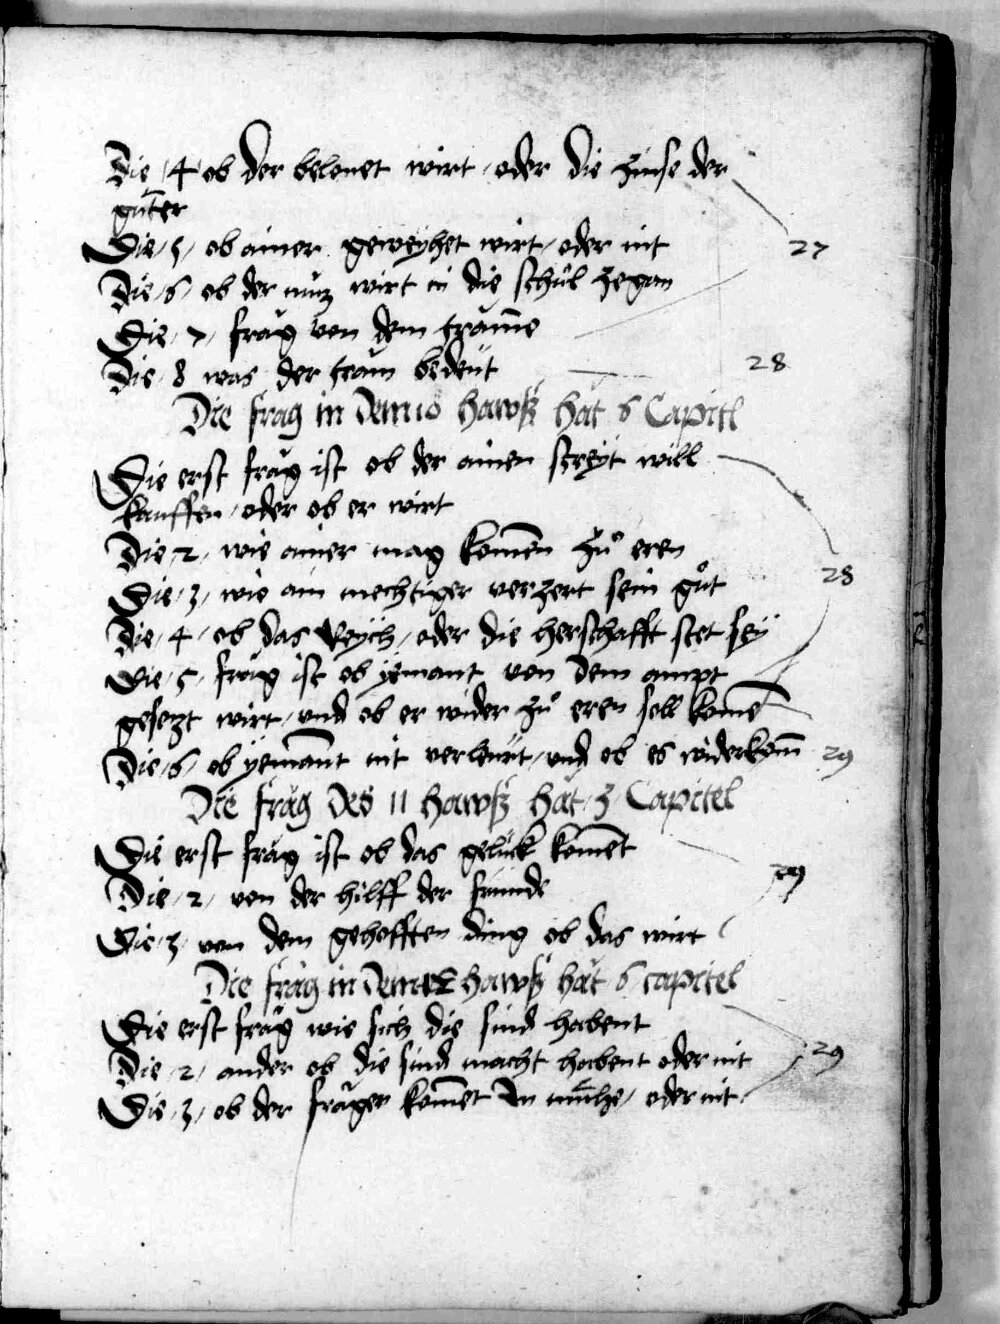 Die ·4· ob der belenet wirt / oder die zinse der
gůter
Die ·5· ob ainer geweyhet wirt / oder nit
Die ·6· ob der nütz wirt in die schůl ze gan
Die ·7· frag von dem traume
Die ·8 was der traum bedeüt
Die frag in dem 10 hawß hat 6 Capitl
Die erst frag ist ob der ainen streyt will
kauffen / oder ob er wirt
Die ·2· wie ainer mag komen zů eren
Die ·3· wie ain mechtiger verzert sein gůt
Die ·4· ob das Reych / oder die herschafft stet seÿ
Die ·5· frag ist ob yemant von dem ampt
gesetzt wirt / und ob er wider zů eren soll kome
Die ·6· ob yemant nit verleürt / und ob es widerkom
Die frag des 11 hawß hat 3 Capitel
Die erst frag ist ob das gelück komet
Die ·2· von der hilff der freunde
Die ·3· von dem gehofften ding ob das wirt
Die frag in dem 12 hawß hat 6 capitel
Die erst frag wie sich die find habent
Die ·2· ander ob die find macht habent oder nit
Die ·3· ob der frager komet in / oder nit
27
28
28
29
29
29